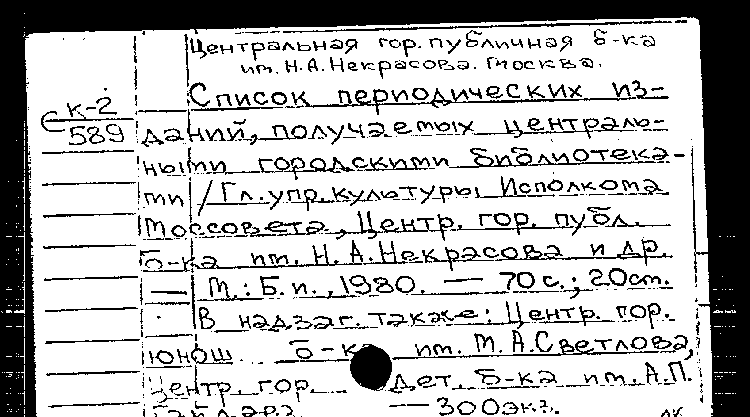 Центральная гор. публичная б-ка
им. Н.А.Некрасова. Москва.
Список периодических из-
К-2
589
даний, получаемых централь-
ными городскими библиотека-
ми / Гл. упр. культуры Исполкома
Моссовета, Центр. гор. публ.
б-ка им. Н.А.Некрасова и др.
— М.: Б.и., 1980. — 70 с.; 20 см.
В надзаг. также: Центр. гор.
юнош. б-ка им. М.А.Светлова,
Центр. гор. дет. б-ка им. А.П.
Гайдара — 300 экз.